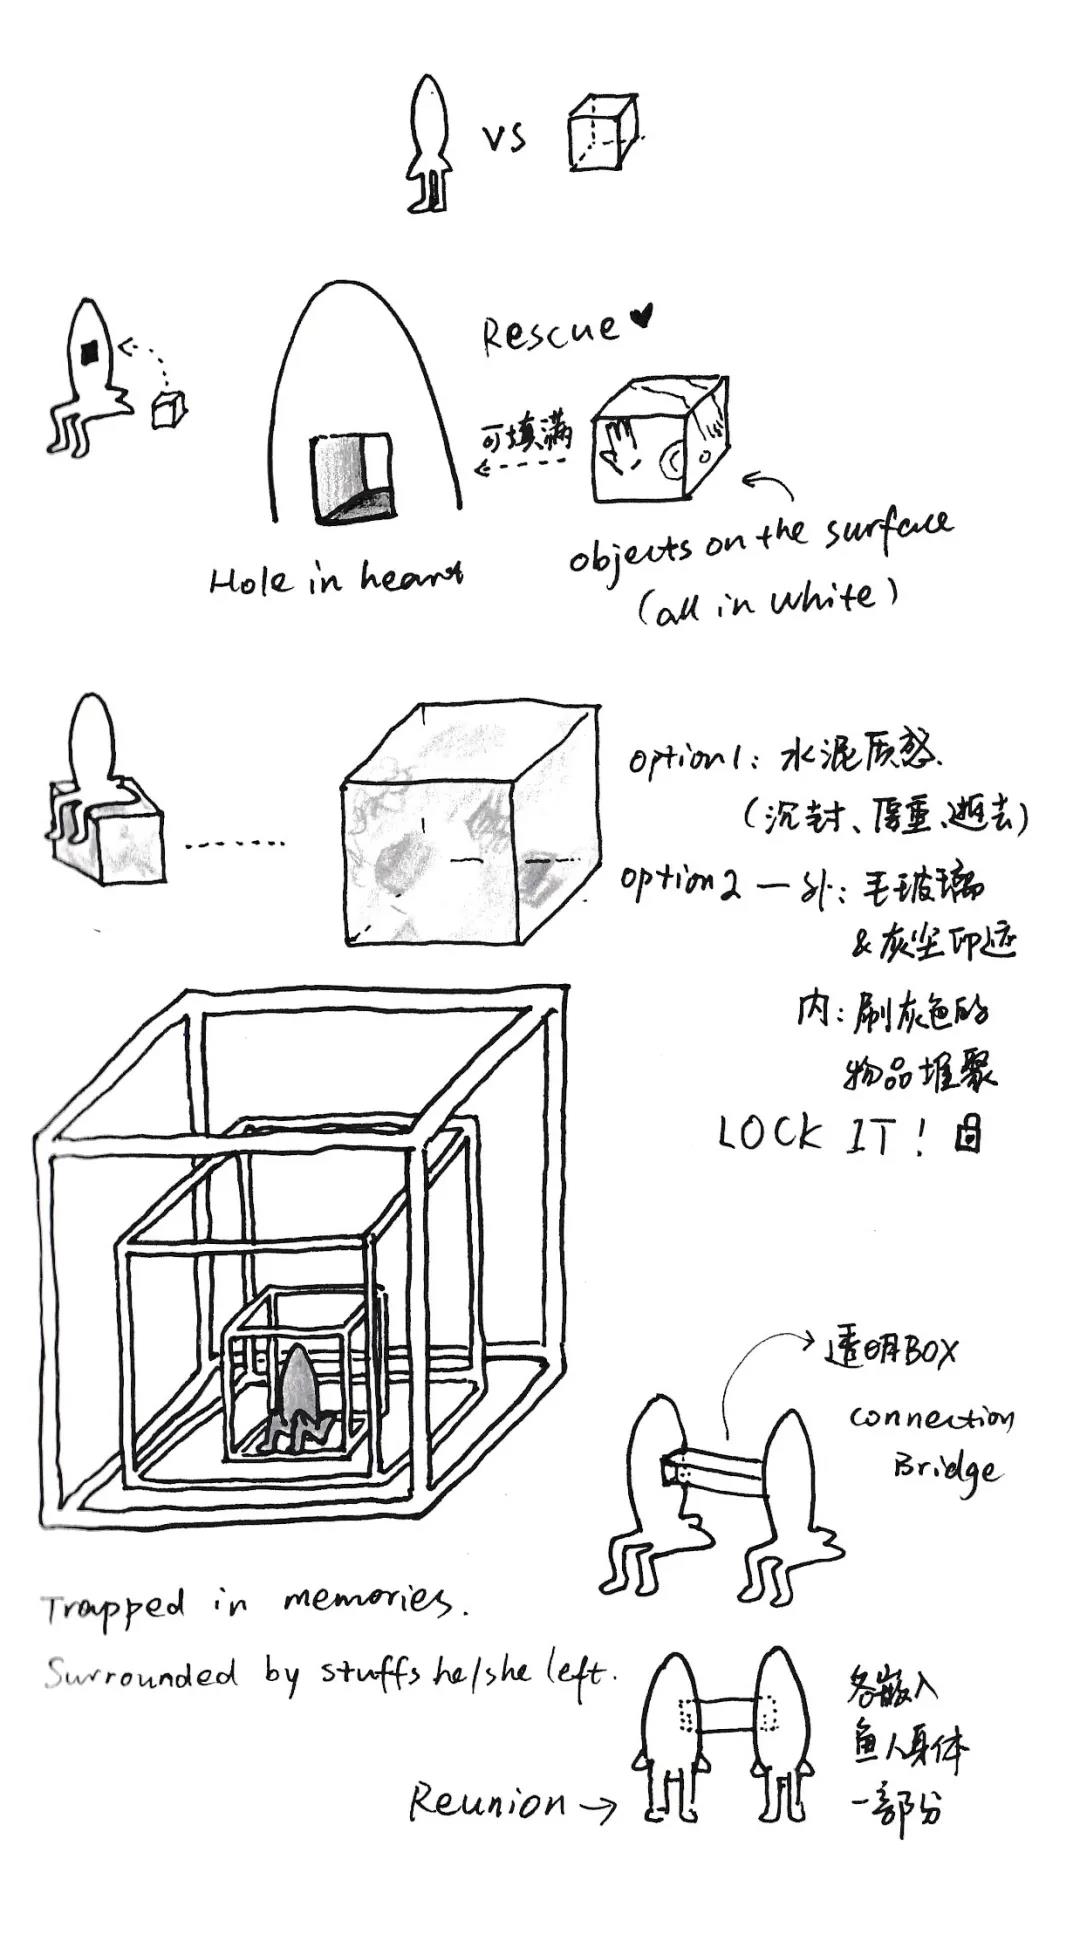 VS
Rescue ♥
可填满
Hole in heart
objects on the surface
(all in white)
option1: 水泥质感.
(沉封、厚重、逝去)
option2 — 外: 毛玻璃
& 灰尘印迹
内: 刷灰色的
物品堆聚
LOCK IT!
透明BOX
connection
Bridge
Trapped in memories.
Surrounded by stuffs he/she left.
各嵌入
鱼人身体
一部分
Reunion →